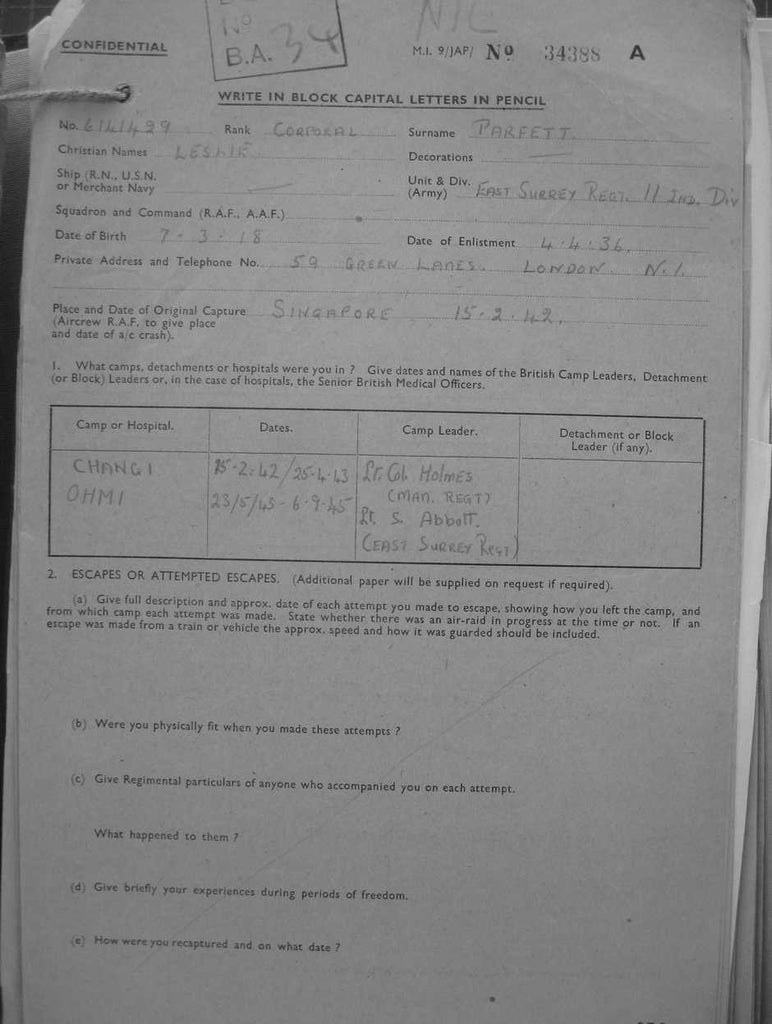 NIL
No
B.A. 34
CONFIDENTIAL
M.I. 9/JAP/ No 34388 A
WRITE IN BLOCK CAPITAL LETTERS IN PENCIL
No. 6141499 Rank CORPORAL Surname PARFETT
Christian Names LESLIE Decorations —
Ship (R.N., U.S.N.
or Merchant Navy —
Unit & Div.
(Army) EAST SURREY REGT. 11 IND. DIV
Squadron and Command (R.A.F., A.A.F.)
Date of Birth 7-3-18 Date of Enlistment 4.4.36.
Private Address and Telephone No. 59 GREEN LANES. LONDON. N.1.
Place and Date of Original Capture SINGAPORE 15-2-42.
(Aircrew R.A.F. to give place
and date of a/c crash).
1. What camps, detachments or hospitals were you in ? Give dates and names of the British Camp Leaders, Detachment
(or Block) Leaders or, in the case of hospitals, the Senior British Medical Officers.
Camp or Hospital. Dates. Camp Leader. Detachment or Block
Leader (if any).
CHANGI 15-2-42/25-4-43 Lt. Col. Holmes
(MAN. REGT)
OHMI 23/5/43-6-9-45 Lt. S. Abbott.
(EAST SURREY REGT)
2. ESCAPES OR ATTEMPTED ESCAPES. (Additional paper will be supplied on request if required).
(a) Give full description and approx. date of each attempt you made to escape, showing how you left the camp, and
from which camp each attempt was made. State whether there was an air-raid in progress at the time or not. If an
escape was made from a train or vehicle the approx. speed and how it was guarded should be included.
(b) Were you physically fit when you made these attempts ?
(c) Give Regimental particulars of anyone who accompanied you on each attempt.
What happened to them ?
(d) Give briefly your experiences during periods of freedom.
(e) How were you recaptured and on what date ?